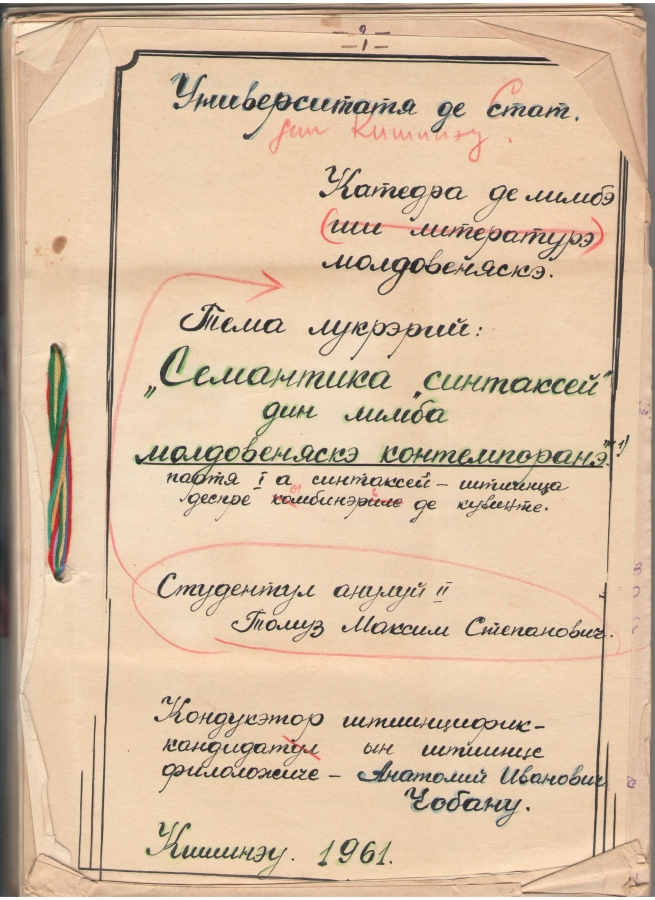 2
– 1 –
Университатя де Стат.
дин Кишинэу.
Катедра де лимбэ
(ши литературэ)
молдовеняскэ.
Тема лукрэрий:
„Семантика „синтаксей"
дин лимба
молдовеняскэ контемпоранэ" 1)
партя I а синтаксей – штиинца
деспре комбинэриле де кувинте.
Студентул анулуй II
Томуз Максим Степанович.
Кондукэтор штиинцифик-
кандидатул ын штиинце
филоложиче – Анатолий Иванович
Чобану.
Кишинэу. 1961.